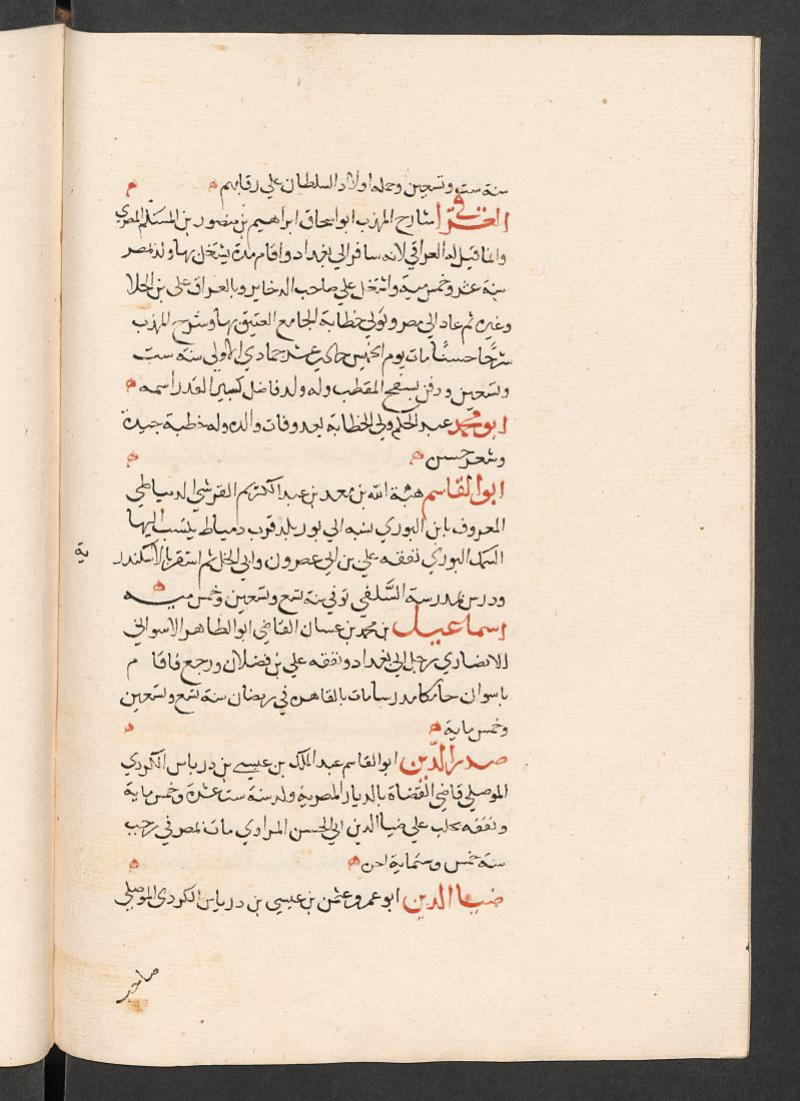 سنة ست وتسعين وحمله اولاد السلطان علي رقابهم
العراقي شارح المهذب ابو اسحاق ابراهيم بن منصور بن المسلم المصري
وانما قيل له العراقي لانه سافر الي بغداد واقام مدة يشتغل بها ولد بمصر
سنة عشر وخمس مية واشتغل علي صاحب الدخاير وبالعراق علي بن الخلا
وغيره ثم عاد الي مصر وتولي خطابة الجامع العتيق بها وشرح المهذب
شرحًا حسنًا مات يوم الخميس حادي عشر جمادي الاولي سنة ست
وتسعين ودفن بسفح المقطب وله ولد فاضل كبير القدر اسمه
ابو محمد عبد الحكم ولي الخطابة بعد وفات والده وله خطبة جيدة
وشعر حسن
ابو القاسم هبة الله بن معد بن عبد الكريم القرشي الدمياطي
المعروف بابن البوري نسبه الي بور بلد قرب دمياط ينسب اليها
السمك البوري تفقه علي بن ابي عصرون وابي الخل ثم استقر بالاسكندر
ية
ودرس بمدرسة السَّلفي توفي سنة تسع وتسعين وخمس ميه
اسماعيل بن محمد بن غسان القاضي ابو الطاهر الاسواني
الانصاري رحل الي بغداد وتفقه علي بن فضلان ورجع فاقا م
باسوان حاكما مدرسا مات بالقاهرة في رمضان سنة تسع وتسعين
وخمس ماية
صدر الدين ابو القاسم عبد الملك بن عيسي بن درباس الكردي
الموصلي قاضي القضاة بالديار المصرية ولد سنة ست عشرة وخمس ماية
وتفقه بحلب علي ضيا الدين ابي الحسن المرادي مات بمصر في رجب
سنة خمس وستماية اخن
ضيا الدين ابو عمرو عثمن بن عيسي بن درباس الكردي الموصلي
صاحب